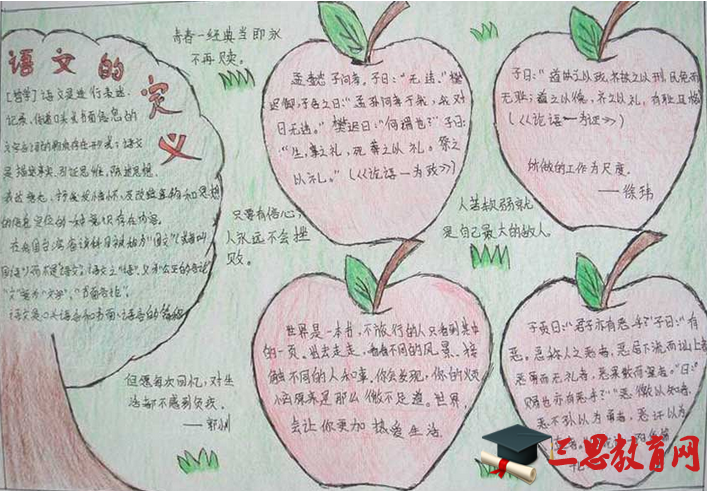 语文的定义
[哲学]语文是进行表述、
记录、传递口头或书面信息的
文字言词的物质存在形式;语文
是描述事实、引证思维、陈述思想、
的信息定位的一种意识存在内容。
语文是口头语言和书面语言的简称
青春一经典当即永
不再赎。
孟懿子问孝。子曰:“无违。”樊
迟御,子告之曰:“孟孙问孝于我,我对
曰无违。”樊迟曰:“何谓也?”子曰:
“生,事之礼,死葬之以礼。祭之
以礼。”(《论语一为政》)
子曰:“道之以政,齐之以刑,民免而
无耻;道之以德,齐之以礼,有耻且格
(《论语一为政》)
所做的工作为尺度。
——徐玮
只要有信心,
人永远不会挫
败。
人若软弱就
是自己最大的敌人。
世界是一本书,不旅行的人只看到其中
的一页。出去走走,看看不同的风景、接
触不同的人和事,你会发现,你的烦
恼原来是那么微不足道。世界,
会让你更加热爱生活
但愿每次回忆,对生
活都不感到负疚。
——郭小川
子贡曰:“君子亦有恶乎?”子曰:“有
恶。恶称人之恶者,恶居下流而讪上者
恶勇而无礼者,恶果敢而窒者。”曰:“
赐也亦有恶乎?”“恶徼以知者,
恶不孙以为勇者,恶讦以为
三思教育网